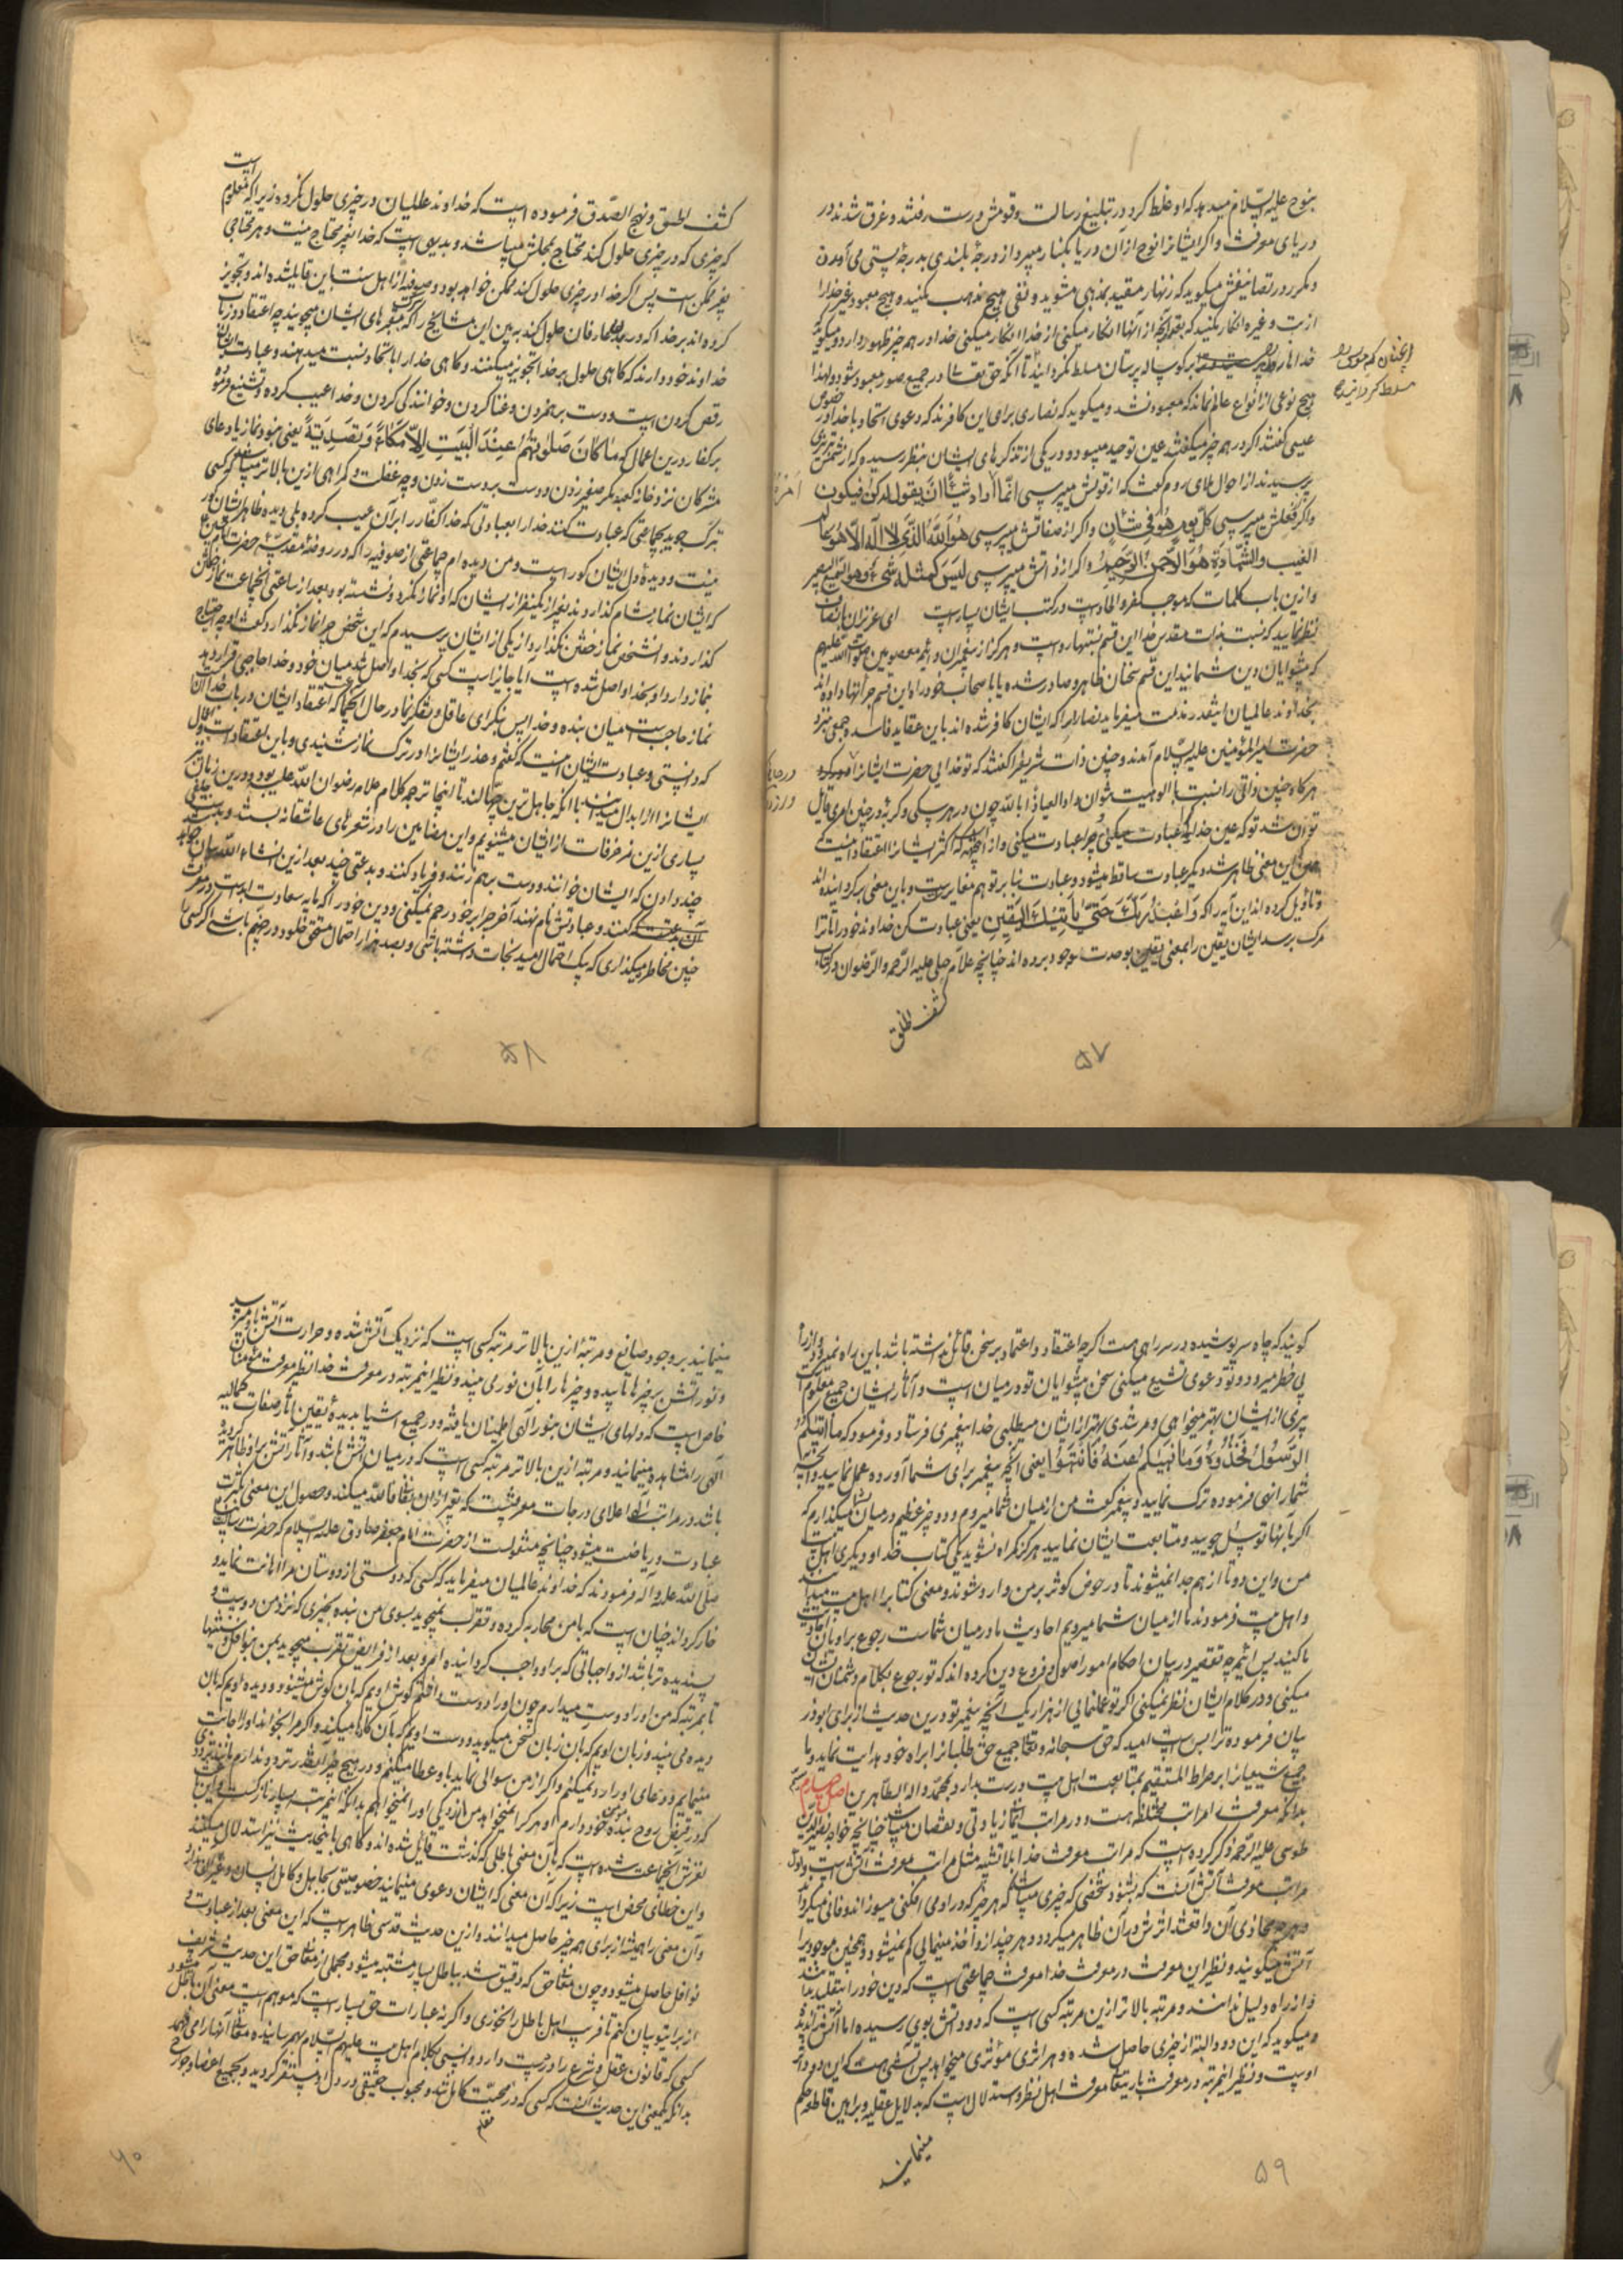 بنوح علیه السلام میدهد که او غلط کرد در تبلیغ رسالت و قومش درست رفتند و غرق شدند در
دریای معرفت و اگر ایشانرا نوح از آن دریا بکنار میبرد از درجهٔ بلندی بدرجهٔ پستی می آمدن
و مکرر در تصانیفش میگوید که زنهار مقید بمذهبی مشوید و نفی هیچ مذهب مکنید و هیچ معبود غیر خدا را
از بت و غیره انکار مکنید که بقدر آنچه از آنها انکار میکنی از خدا انکار میکنی خدا در همه چیز ظهور دارد و میگوید
خدا هارون را بر گوساله پرستان مسلط نگردانید تا آنکه حق تعالی در جمیع صور معبود شود و لهذا
همچنان که موسی را
مسلط گردانید
هیچ نوعی از انواع عالم نماند که معبود نشد و میگوید که نصاری برای این کافرند که دعوی اتحاد با خدا در خصوص
عیسی گفتند اگر در همه چیز میگفتند عین توحید میبود و در یکی از تذکرهای ایشان بنظر رسیده که از شمس تبریزی
پرسیدند از احوال ملای روم گفت که از قولش میپرسی انما اراد شیئا ان یقول له کن فیکون
امره
و اگر فعلش میپرسی کل یوم هو فی شان و اگر از صفاتش میپرسی هو الله الذی لا اله الا هو عالم
الغیب والشهادة هو الرحمن الرحیم و اگر از ذاتش میپرسی لیس کمثله شیء وهو السمیع البصیر
و ازین باب کلمات که موجب کفر و الحاد است در کتب ایشان بسیار است ای عزیزان بانصاف
نظر نمایید که نسبت بذات مقدس خدا این قسم نسبتها رواست و هرگز از پیغمبران و ائمه معصومین صلوات الله علیهم
که پیشوایان دین شمایند این قسم سخنان ظاهر و صادر شده یا باصحاب خود راه این قسم جرأتها داده اند
خداوند عالمیان اینقدر مذمت میفرماید نصاری را که ایشان کافر شده اند باین عقاید فاسده جمعی نزد
حضرت امیر المؤمنین علیه السلام آمدند و چنین ذات شریفرا گفتند که تو خدایی حضرت ایشانرا
هرگاه چنین ذاتی را نسبت بالوهیت نتوان داد العیاذ بالله چون در هر سگی و گربهٔ و چنین امری قائل
توان شد تو که عین خدایی عبادت میکنی و چرا عبادت میکنی و از اینجهت است که اکثر ایشانرا اعتقاد اینست
که چون این معنی ظاهر شد دیگر عبادت ساقط میشود و عبادت بنا بر توهم مغایرتست و باین معنی برگردانیده اند
و تاویل کرده اند این آیه را که و اعبد ربک حتی یأتیک الیقین یعنی عبادت کن خداوند خود را تا ترا
مرگ برسد ایشان یقین را بمعنی یقین بوحدت موجود برده اند چنانچه علامه حلی علیه الرحمة والرضوان در کتاب
کشف الحق
۵۷
کشف الحق و نهج الصدق فرموده است که خداوند عالمیان در چیزی حلول نکرده زیرا که معلوم است
که چیزی که در چیزی حلول کند محتاج بمحلش میباشد و بدیهی است که خدا بغیر محتاج نیست و هر محتاجی
بغیر ممکن است پس اگر خدا در چیزی حلول کند ممکن خواهد بود و صوفیه از اهل سنت باین قائل شده اند و تجویز
کرده اند بر خدا که در بدنهای عارفان حلول کند به بین این مشایخ را که تبرک بقبرهای ایشان میجویند چه اعتقاد در باب
خداوند خود دارند که گاهی حلول بر خدا تجویز میکنند و گاهی خدا را باتحاد نسبت میدهند و عبادت ایشان
رقص کردن است و دست بر هم زدن و غنا کردن و خوانندگی کردن و خدا عیب کرده و تشنیع فرموده
بر کفار در این اعمال که ما کان صلوتهم عند البیت الا مکاء و تصدیة یعنی نبود نماز یا دعای
مشرکان نزد خانه کعبه مگر صفیر زدن و دست بر دست زدن و چه غفلت و گمراهی ازین بالاتر میباشد که کسی
تبرک جوید بجماعتی که عبادت کنند خدا را بعبادتی که خدا کفار را بر آن عیب کرده بلی دیده ظاهر ایشان کور
نیست و دیدهٔ دل ایشان کور است و من دیده ام جماعتی از صوفیه را که در روضهٔ مقدسهٔ حضرت امام حسین
که ایشان نماز شام گذاردند بغیر از یکنفر از ایشان که او نماز نکرد و نشسته بود بعد از ساعتی آنجماعت نماز خفتن
گذاردند و آنشخص نماز خفتن نگذارد از یکی از ایشان پرسیدم که این شخص چرا نماز نگذارد گفت او چه احتیاج
بنماز دارد او بخدا واصل شده است آیا جایز است کسی که بخدا واصل شد میان خود و خدا حاجبی قرار دهد
نماز حاجب است میان بنده و خدا پس بنگر ای عاقل و تفکر نما در حال این جماعت که اعتقاد ایشان در باب خدا آن
که دانستی و عبادت ایشان اینست که گفتم و عذر ایشانرا در ترک نماز شنیدی و باین اعتقاد است
ایشانرا از ابدال میدانند با آنکه جاهل ترین جهالند تا اینجا ترجمه کلام علامه رضوان الله علیه بود و درین زمان
بسیاری ازین مزخرفات از ایشان میشنویم و این مضامین را در شعرهای عاشقانه بسته و بدست خلقی
چند دادن که ایشان خوانند و دست بر هم زنند و فریاد کنند و بدعتی چند بعد ازین انشاء الله بیان خواهد
گفتند و عبادتش نام نهند آخر چرا بر خود رحم نمیکنی و دین خود را که مایه سعادت ابد است در معرض
چنین مخاطره میگذاری که یک احتمال امید نجات داشته باشی و بصد هزار احتمال مستحق خلود در جهنم باشی اگر کسی با
۵۸
گویند که چاه سرپوشیده در سر راهی هست اگرچه اعتقاد و اعتماد بر سخن قائل نداشته باشد باین راه نمیرود و از راه
بی خطر میرود و تو دعوی تشیع میکنی سخن پیشوایان تو در میان است و آثار ایشان جمیع معلوم است
پیری از ایشان بهتر میخواهی و مرشدی بهتر از ایشان میطلبی خدا پیغمبری فرستاد و فرمود که ما آتیکم
الرسول فخذوه و ما نهیکم عنه فانتهوا یعنی آنچه پیغمبر برای شما آورده عمل نمایید و آنچه
شما را نهی فرموده ترک نمایید و پیغمبر گفت من از میان شما میروم و دو چیز عظیم در میان شما میگذارم که
اگر بآنها توسل جویید و متابعت ایشان نمایید هرگز گمراه نشوید یکی کتاب خدا و دیگری اهل بیت
من و این دو تا از هم جدا نمیشوند تا در حوض کوثر بر من وارد شوند و معنی کتابرا اهل بیت میدانند
و اهل بیت فرمودند ما از میان شما میرویم احادیث ما در میان شماست رجوع براویان احادیث
ما کنید پس ائمه چه تقصیر در بیان احکام امور اصول و فروع دین کرده اند که تو رجوع بکلام دشمنان ایشان
میکنی و در کلام ایشان نظر نمیکنی اگر تو عمل نمایی از هزار یک آنچه پیغمبر تو درین حدیث از برای ابوذر
بیان فرموده ترا بس است امید که حق سبحانه و تعالی جمیع حق طلبانرا براه خود هدایت نماید و ما
جمیع شیعیانرا بر صراط المستقیم بمتابعت اهل بیت درست بدارد بمحمد و اله الطاهرین اصل چهارم
بدانکه معرفت را مراتب مختلفه هست و در مراتب ایمان زیادتی و نقصان میباشد چنانچه خواجه نصیر الدین
طوسی علیه الرحمة ذکر کرده است که مراتب معرفت خدا بلا تشبیه مثل مراتب معرفت آتش است و اول
مراتب معرفت آتش آنست که بشنود شخصی که چیزی میباشد که هر چیز که در او می افکنی میسوزاند و فانی میگرداند
و هر چه محاذی آن واقعشد اثرش در آن ظاهر میگردد و هر چند ازو اخذ مینمایی کم نمیشود و همچنین موجود را
آتش میگویند و نظیر این معرفت در معرفت خدا معرفت جماعتی است که دین خود را بتقلید بدانند
و از راه دلیل ندانند و مرتبه بالاتر ازین مرتبه کسی است که دود آتش بوی رسیده اما آتش را ندیده
و میگوید که این دود البته از چیزی حاصل شده و هر اثری موثری میخواهد پس آتشی هست که این دود اثر
اوست و نظیر اینمرتبه در معرفت باریتعالی معرفت اهل نظر و استدلال است که بدلایل عقلیه و براهین قاطعه حکم
مینمایند
۵۹
مینمایند بر وجود صانع و مرتبهٔ ازین بالاتر مرتبه کسی است که نزدیک آتش شده و حرارت آتش باو میرسد
و بنور آتش بر چیزها تابیده و چیزها را بآن نور می بیند و نظیر اینمرتبه در معرفت خدا نظیر معرفت مؤمنان
خاص است که دلهای ایشان بنور الهی اطمینان یافته و در جمیع اشیا بدیدهٔ یقین آثار صفات کمالیه
الهی را مشاهده مینمایند و مرتبه ازین بالاتر مرتبه کسی است که در میان آتش باشد و آثار آتش بر او ظاهر گردیده
باشد در مراتب آنها اعلای درجات معرفتست که تعبیر از آن بفنا فی الله میکنند و حصول این معنی بکثرت
عبادت و ریاضت میشود چنانچه منقولست از حضرت امام جعفر صادق علیه السلام که حضرت رسالت پناه
صلی الله علیه و آله فرمودند که خداوند عالمیان میفرماید که کسی که دوستی از دوستان مرا اهانت نماید و
خار گرداند چنان است که با من محاربه کرده و تقرب نمیجوید بسوی من بنده بچیزی که نزد من دوست و
پسندیده تر باشد از واجباتی که بر او واجب گردانیده ام و بعد از فرایض تقرب میجوید بمن بنوافل و سنتیها
تا بمرتبه که من او را دوست میدارم چون او را دوست داشتم گوش اویم که بآن گوش میشنود و دیده اویم که بآن
دیده می بیند و زبان اویم که بآن زبان سخن میگوید و دست اویم که بآن کارها میکند و اگر مرا بخواند او را اجابت
مینمایم و دعای او را رد نمیکنم و اگر از من سوالی نماید باو عطا میکنم و در هیچ امر آنقدر تردد ندارم مانند تردد
که در قبض روح بنده مومن خود دارم او مرگرا نمیخواهد من آزردگی او را نمیخواهم بدانکه اینمرتبه بسیار نازک است و این
لغزش آنجماعت شده است که بآن معنی باطلی که گذشت قائل شده اند و گاهی باینحدیث نیز استدلال میکنند
و این خطای محض است زیرا که آن معنی که ایشان دعوی مینمایند خصوصیتی بجاهل و کامل انسان و غیر آن ندارد
و آن معنی را همیشه از برای همه چیز حاصل میدانند و ازین حدیث قدسی ظاهر است که این معنی بعد از عبادت و
نوافل حاصل میشود و چون معانی حق که دقیق شد بباطل بسیار مشتبه میشود مجملی از معانی حق این حدیث شریف
از برای تو بیان کنم تا فریب اهل باطل را نخوری و اگر نه عبارات حق بسیار است که موهم است معنی آن باطل میشود
کسی که قانون عقل و شرع را در دست دارد و انسی بکلام اهل بیت علیهم السلام بهم رسانیده معانی آنها را می فهمد
بدانکه یکمعنی این حدیث آنست که کسی که در محبت کامل شد و محبوب حقیقی در دل او مستقر گردید و بجمیع اعضا و جوارح
۶۰